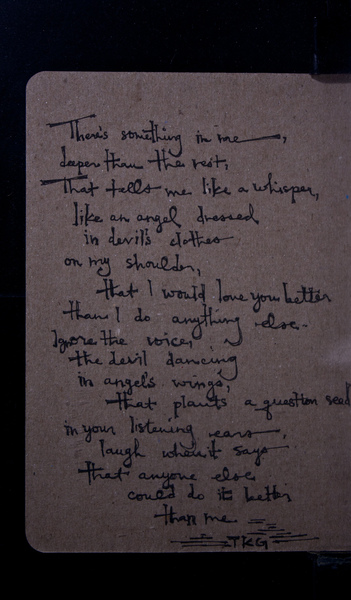 There's something in me,
deeper than the rest,
That tells me like a whisper,
like an angel dressed
in devil's clothes
on my shoulder,
that I would love you better
than I do anything else.
Ignore the voice,
the devil dancing
in angel's wings,
that plants a question seed
in your listening ears,
laugh when it says
that anyone else
could do it better
than me.
TKG